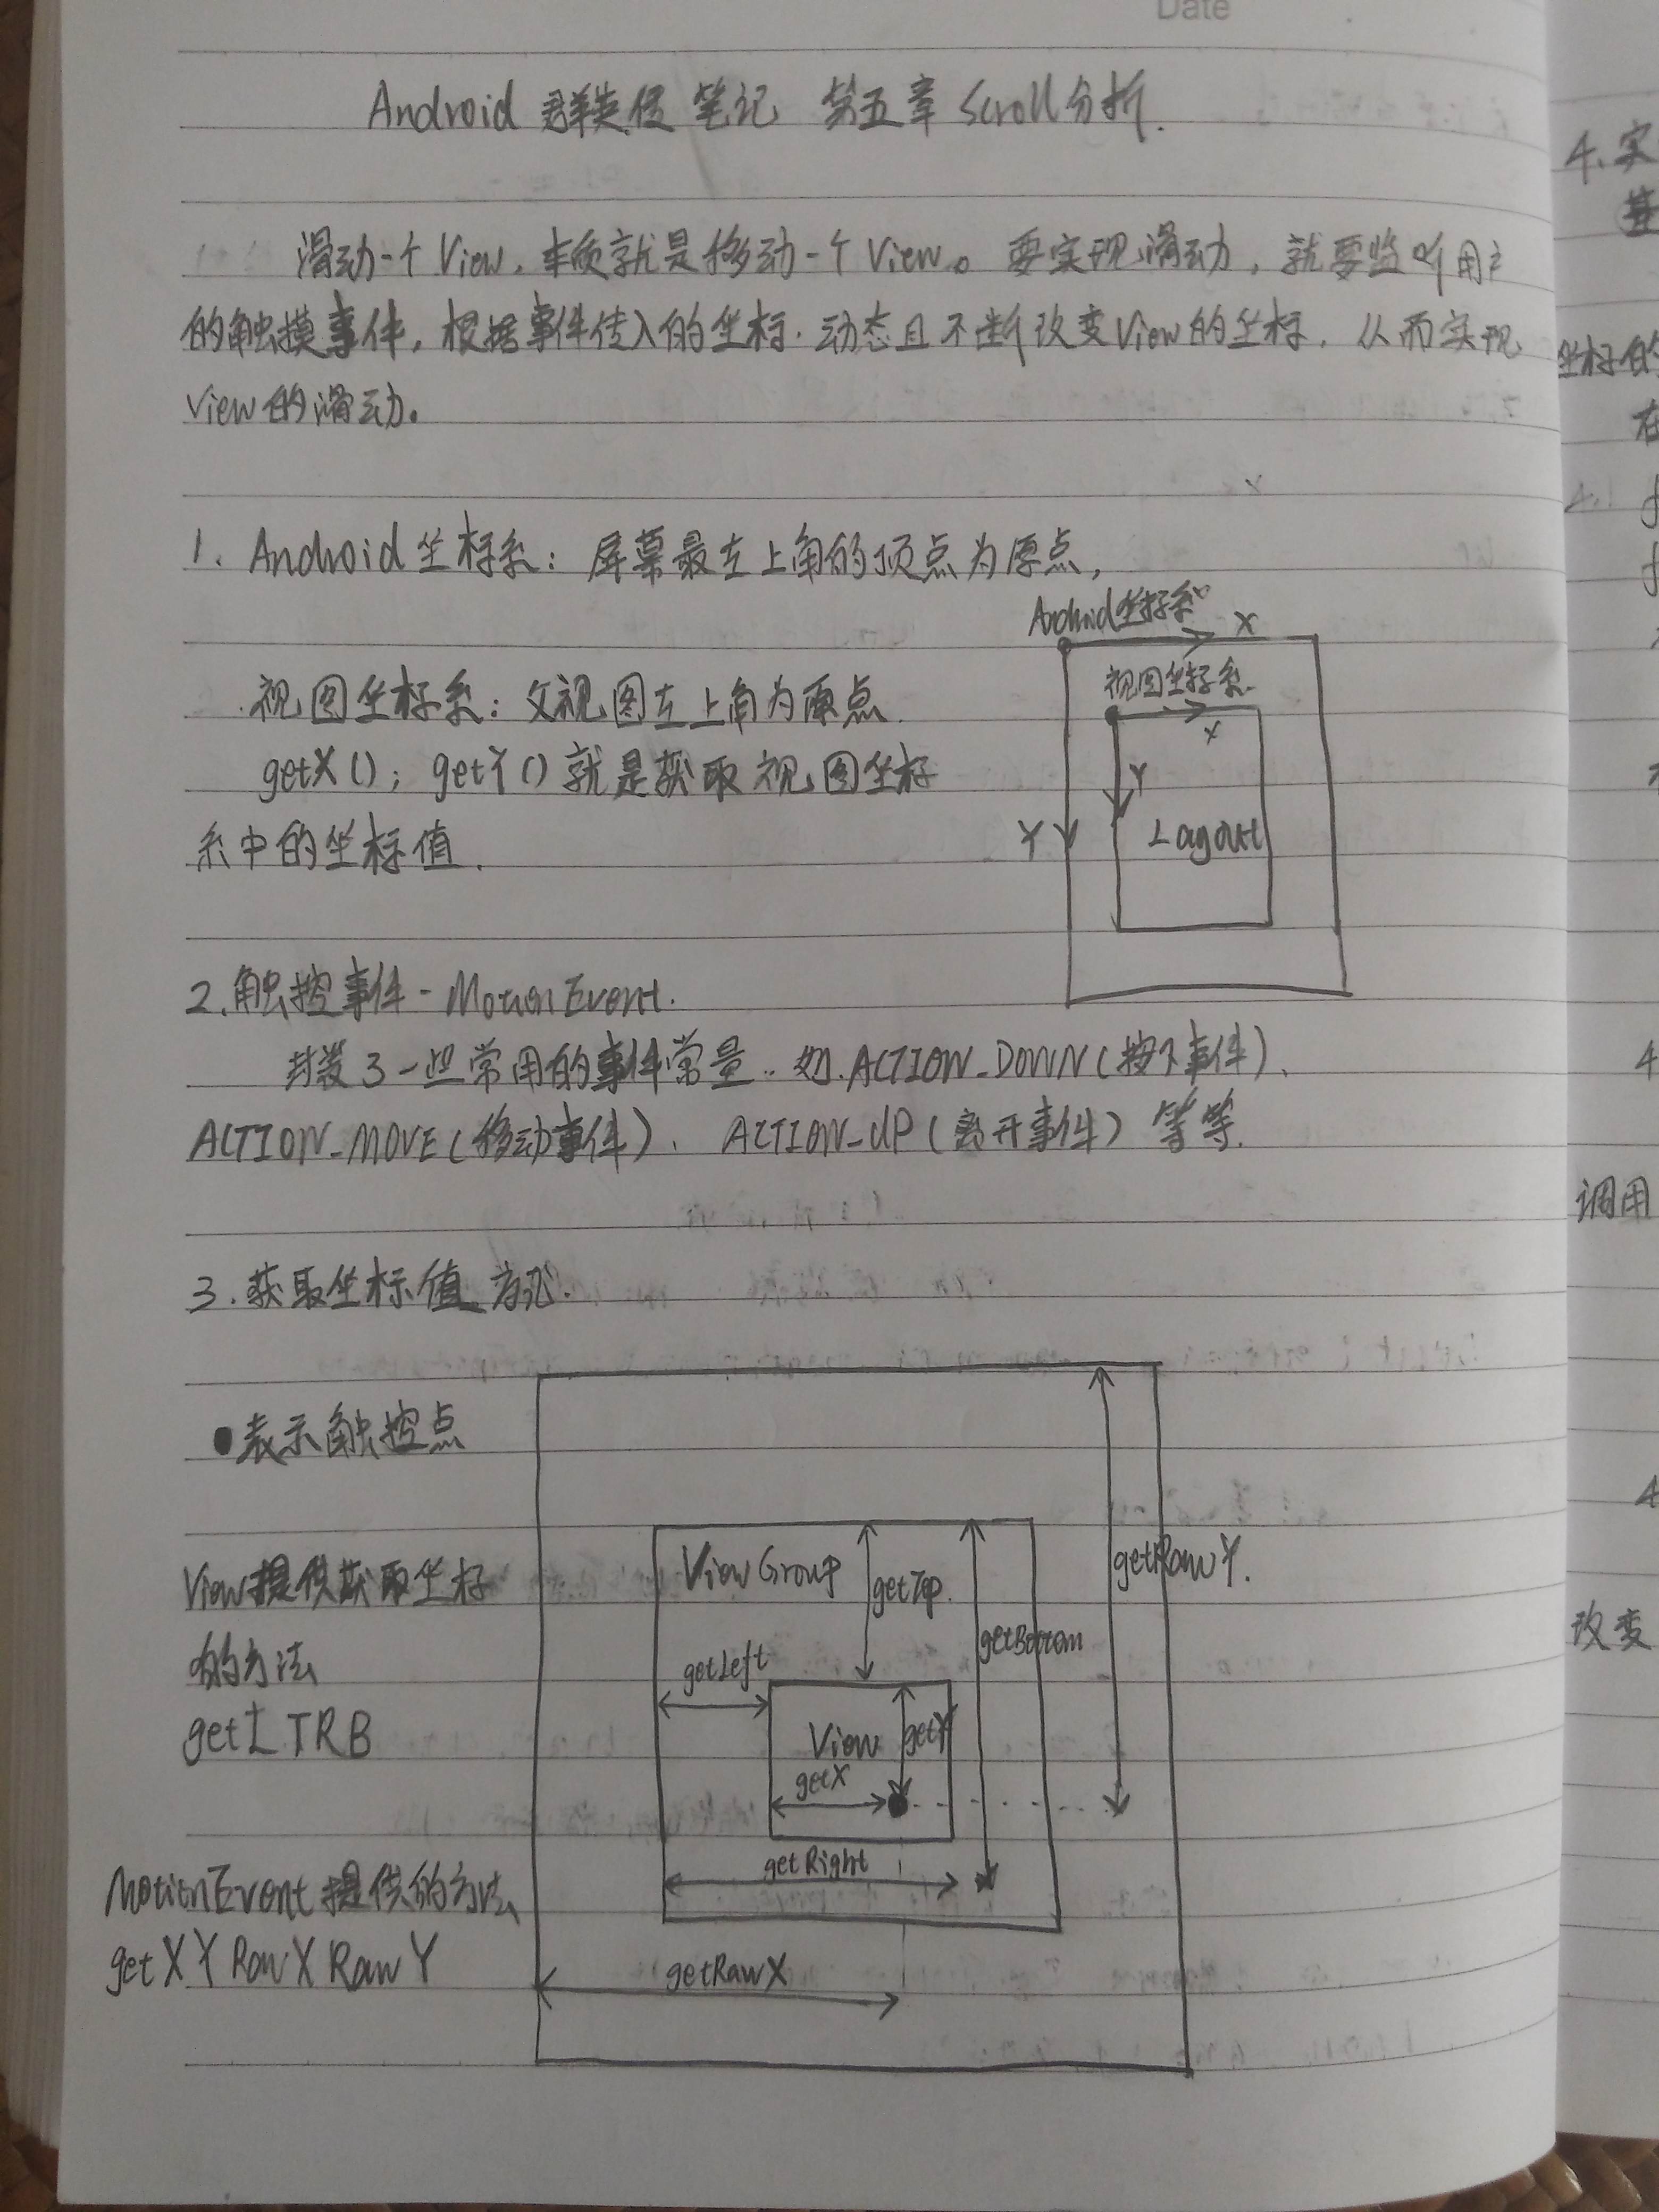 Date
Android 群英传 笔记 第五章 Scroll分析.
滑动一个View,本质就是移动一个View。要实现滑动,就要监听用户
的触摸事件,根据事件传入的坐标.动态且不断改变View的坐标,从而实现
View的滑动。
1. Android坐标系:屏幕最左上角的顶点为原点,
视图坐标系:父视图左上角为原点.
getX(); getY()就是获取视图坐标
系中的坐标值.
Android坐标系
X
视图坐标系
X
Y
Y
Layout
2.触控事件-MotionEvent.
封装了一些常用的事件常量.如.ACTION_DOWN(按下事件)、
ACTION_MOVE(移动事件)、ACTION_UP(离开事件)等等.
3.获取坐标值方法.
●表示触控点
View提供获取坐标
的方法
getLTRB
MotionEvent提供的方法
getXYRawXRawY
ViewGroup
getTop
getRawY.
getBottom
getLeft
View
getY
getX
getRight
getRawX
4.实
基
坐标的
在
4
调用
4
改变